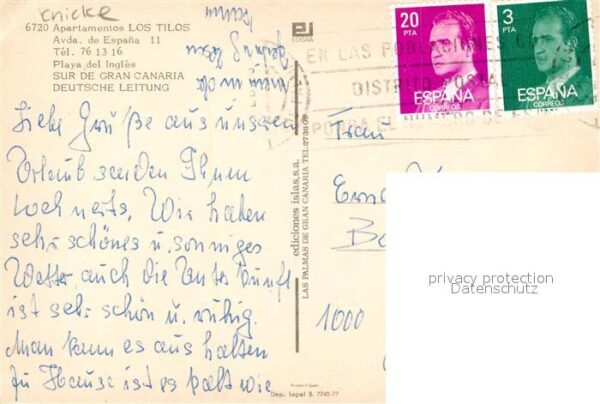 knicke
6720 Apartamentos LOS TILOS
Avda. de España 11
Tél. 76 13 16
Playa del Inglés
SUR DE GRAN CANARIA
DEUTSCHE LEITUNG
Liebe Grüße aus unserem
Urlaub senden Ihnen
Wir haben
sehr schönes u. sonniges
Wetter auch die Unterkunft
ist sehr schön u. ruhig.
Man kann es aushalten
zu Hause ist es kalt wie
ediciones islas, s.a.
LAS PALMAS DE GRAN CANARIA TEL.
Printed in Spain
Dep. Legal B. 7740-77
20
PTA
ESPAÑA
CORREOS
3
PTA
ESPAÑA
CORREOS
EN LAS POBLACIONES CON
DISTRITO POSTAL
PONGA EL NUMERO DE
Frau
1000
privacy protection
Datenschutz